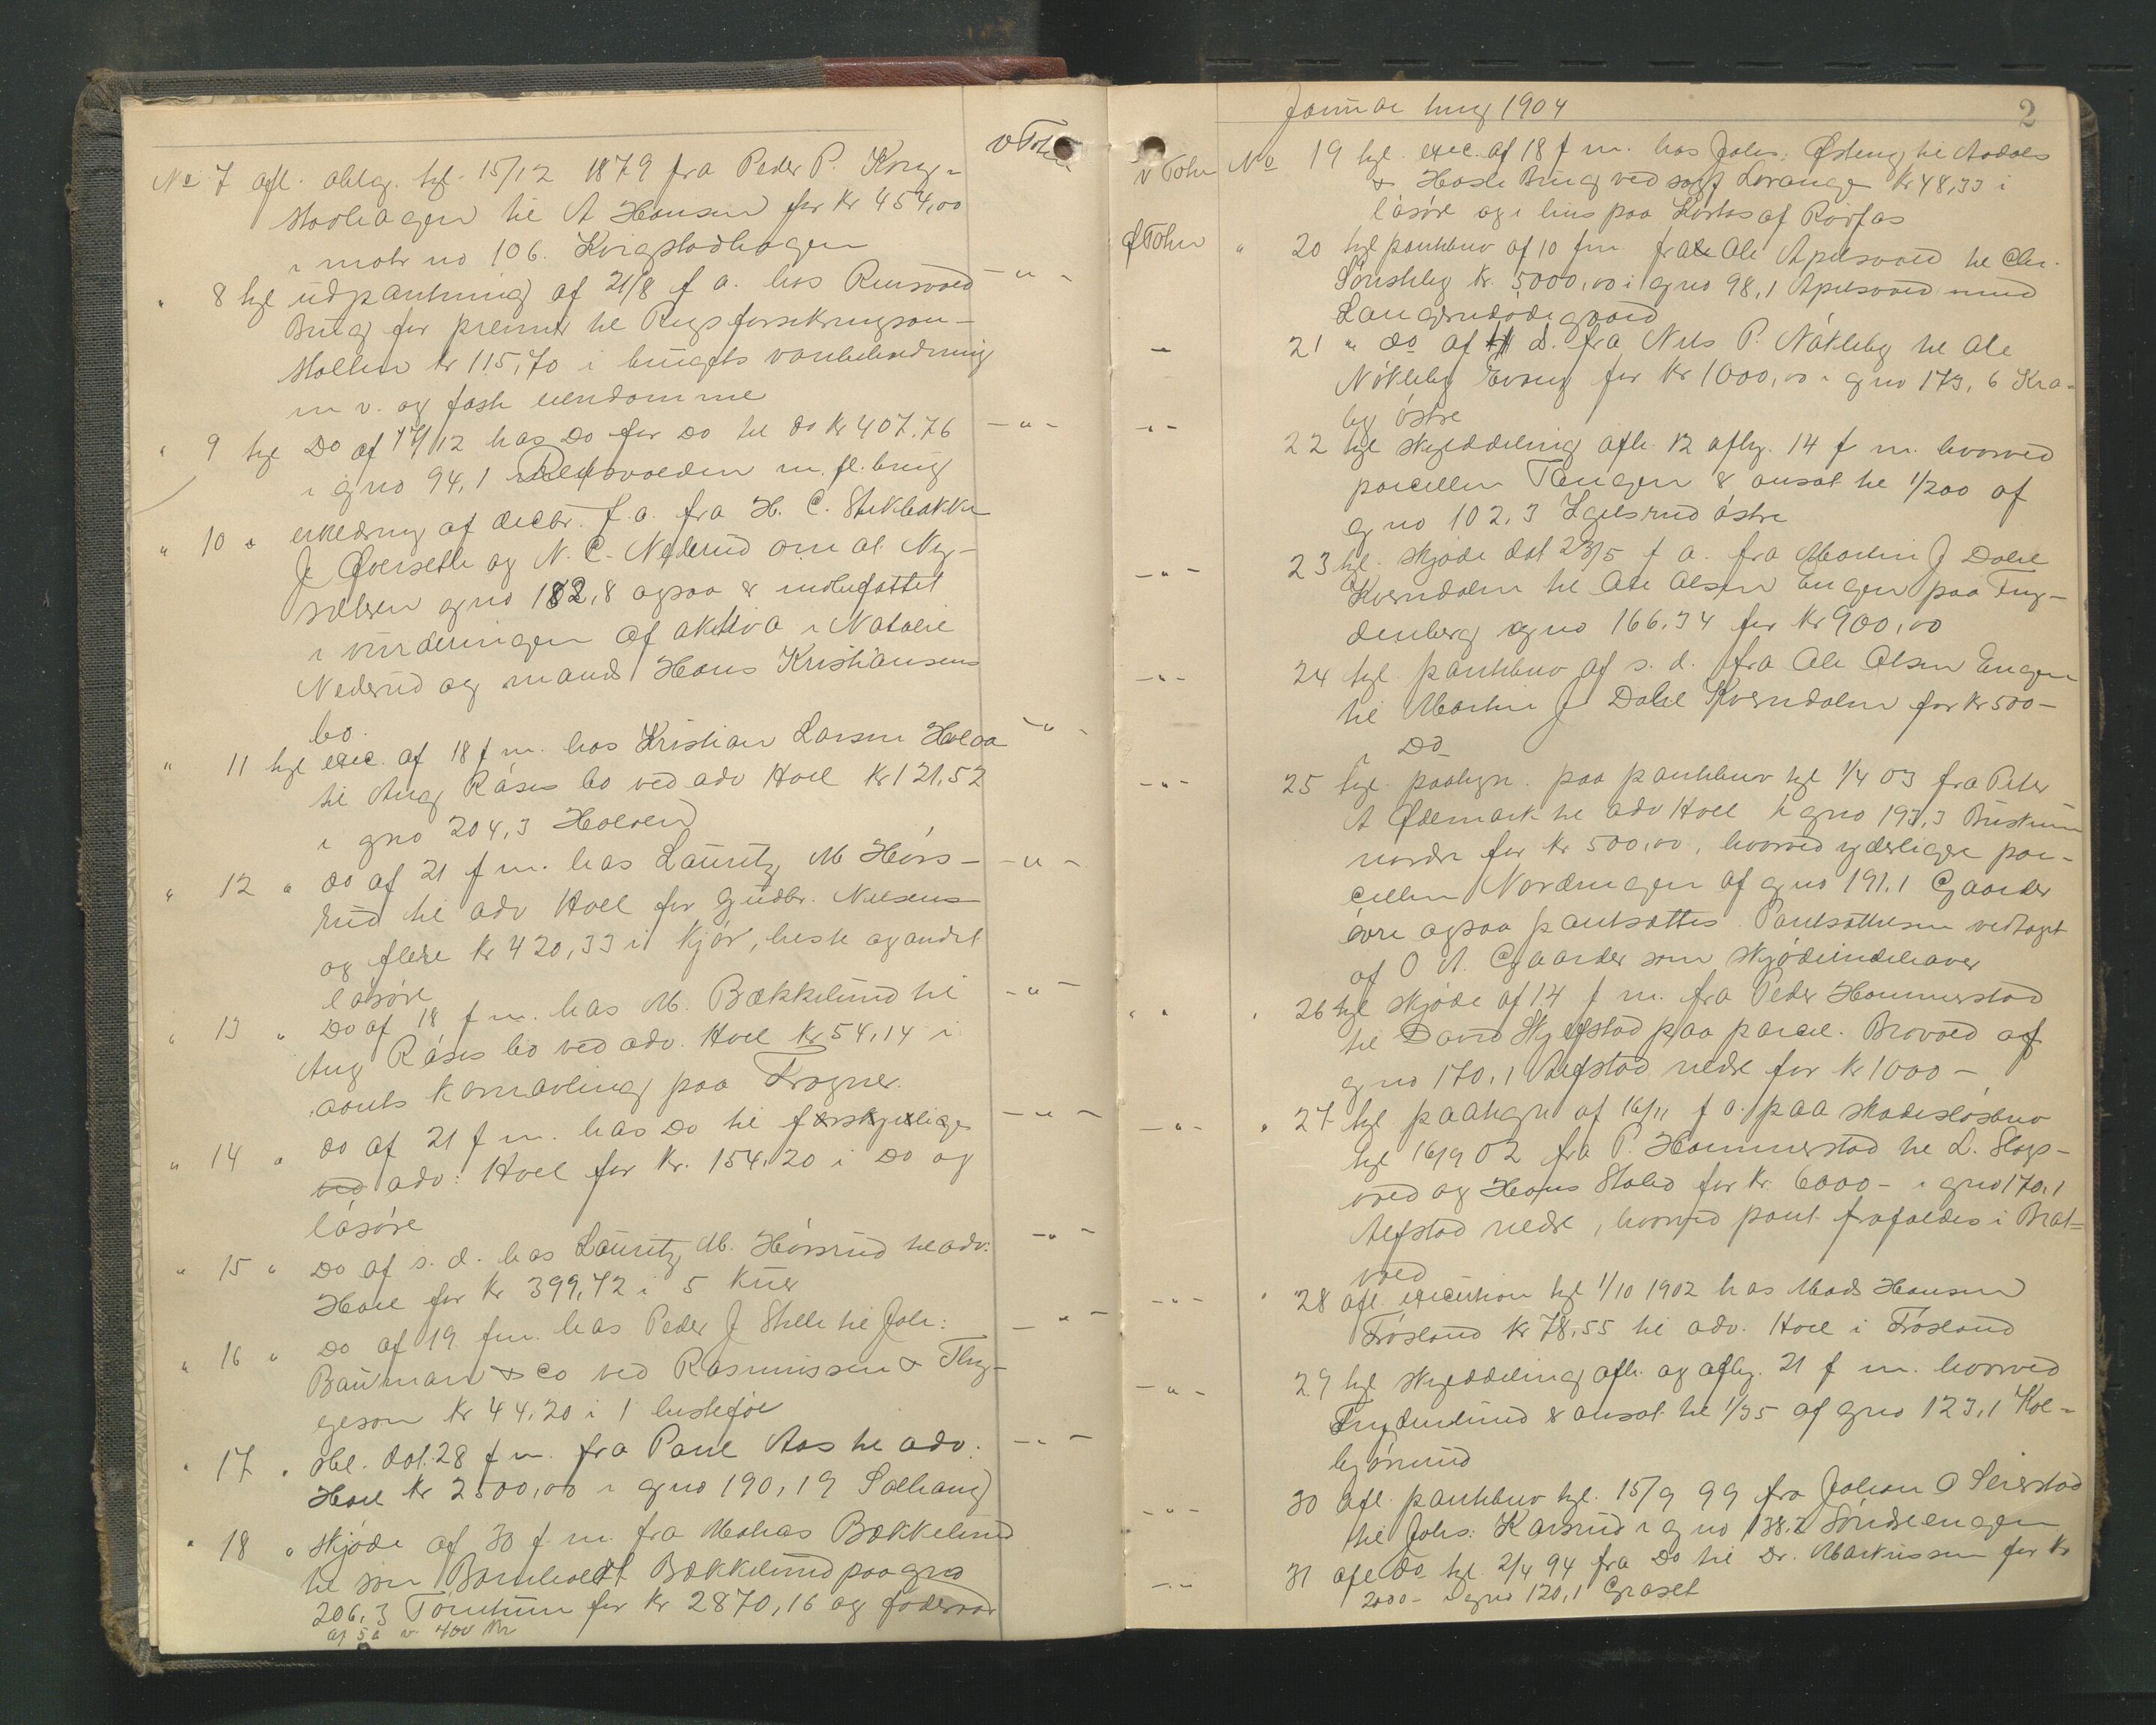 v Toten
No 7 afl. oblig. tgl. 15/12 1879 fra Peder P. Kvig-
stadhagen til A Hansen for kr 454,00
i matr no 106. Kvigstadhagen
" 8 tgl udpantning af 21/8 f a. hos Reinsvold - " -
Brug for premie til Rigsforsikringsan-
stalten kr 115,70 i brugets varebeholdning
m v. og faste eiendomme
" 9 tgl Do af 14/12 hos Do for Do til Do kr 407.76 - " -
i gno 94,1 m. fl. brug
" 10 " erklæring af decbr. f. a. fra H. C. Stikbakke
J Qverseth og N. C. Nederud om at Ny-
sætren gno 182,8 ogsaa er indbefattet
i vurderingen af aktiva i Natalie
Nederud og mands Hans Kristiansens
bo.
" 11 tgl exec. af 18 f m. hos Kristian Larsen Holaa - " -
til Aug Raases bo ved adv Hoel kr 121,52
i gno 204,3 Holoen
" 12 " do af 21 f m. hos Lauritz M Hørs- - " -
rud til adv Hoel for Gudbr. Nielsens
og flere kr 420,33 i kjør, heste og andet
løsøre
" 13 " Do af 18 f m. hos M. Bækkelund til - " -
Aug Raases bo ved adv. Hoel kr 54,14 i
aarets kornavling paa Frogner.
" 14 " do af 21 f m. hos Do til forskjellige - " -
ved adv. Hoel for kr. 154.20 i Do og
løsøre
" 15 " Do af s. d. hos Lauritz M. Hørsrud til adv: - " -
Hoel for kr 399,72 i 5 kuer
" 16 " Do af 19 fm. hos Peder J Stelle til Joh: - " -
Bauman & Co ved Rasmussen & Thy-
geson kr 44,20 i 1 hesteføl
" 17 " skl. dat. 28 f m. fra Paul Aas til adv. - " -
Hoel kr 2500,00 i gno 190,19 Solhaug
" 18 " skjøde af 30 f. m. fra Mathias Bækkelund
til søn Bernhardt Bækkelund paa gno
206,3 Tømten for kr 2870,16 og føderaad
af 5 a v. 400 kr
Januar ting 1904 2
v Toten No 19 tgl. exec. af 18 f m. hos Johs: Østeng til Aadals
& Hasle Brug ved sagf Lorange kr 48,33 i
løsøre og i hus paa Kortas af Rørfos
Ø Toten " 20 tgl pantebrev af 10 f m. fra Ole Apelsvold til Chr.
Sønsteby kr 5000,00 i gno 98,1 Apelsvold med
Langerudødegaard
- 21 " do af s. d. fra Nils P. Nøkleby til Ole
Nøkleby Evang for kr 1000,00 i gno 173,6 Kra-
by østre
- " - 22 tgl skylddeling afh. 12 afhj. 14 f m. hvorved
parcellen Tangen er ansat til 1/200 af
gno 102,3 Igelsrud østre
- " - 23 tgl. skjøde dat 23/5 f a. fra Martin J Dahl
Kverndalen til Ole Olsen Engen paa Fry-
denberg gno 166.34 for kr 900,00
- " - 24 tgl pantebrev af s. d. fra Ole Olsen Engen
til Martin J Dahl Kverndalen for kr 500-
i Do
- " - 25 tgl. paategn. paa pantebrev tgl 1/4 03 fra Peter
A Ødemark til adv Hoel i gno 193,3 Buskum
nordre for kr 500,00, hvorved yderligere par-
cellen Nordengen af gno 191.1 Gaarder
øvre ogsaa pantsættes. Pantsættelsen vedtaget
af O A. Gaarder som skjødeindehaver
" " 26 tgl skjøde af 14 f m. fra Peder Hammerstad
til David Skjelstad paa parcel. Brovold af
gno 170,1 Alfstad nedre for kr 1000 -
- " - " 27 tgl paategn af 16/11 f a. paa skadesløsbrev
tgl 16/9 02 fra P. Hammerstad til L. Slogs-
vold og Hans Stabo for kr 6000- i gno 170,1
Alfstad nedre, hvorved pant frafaldes i Brat=
vold
- " - " 28 afl execution tgl 1/10 1902 hos Mads Hansen
Frøsland kr 78,55 til adv. Hoel i Frøsland
- " - 29 tgl skylddeling afh. og afhj. 21 f m. hvorved
Frydenlund er ansat til 1/35 af gno 123,1 Kol-
bjørnrud
- " - 30 afl. pantebrev tgl. 15/9 99 fra Johan O Seierstad
til Johs: Karsrud i gno 138.2 Søndreengen
- " - 31 afl do tgl. 2/4 94 fra Do til Dr. Markussen for kr
2000- i gno 120,1 Graset